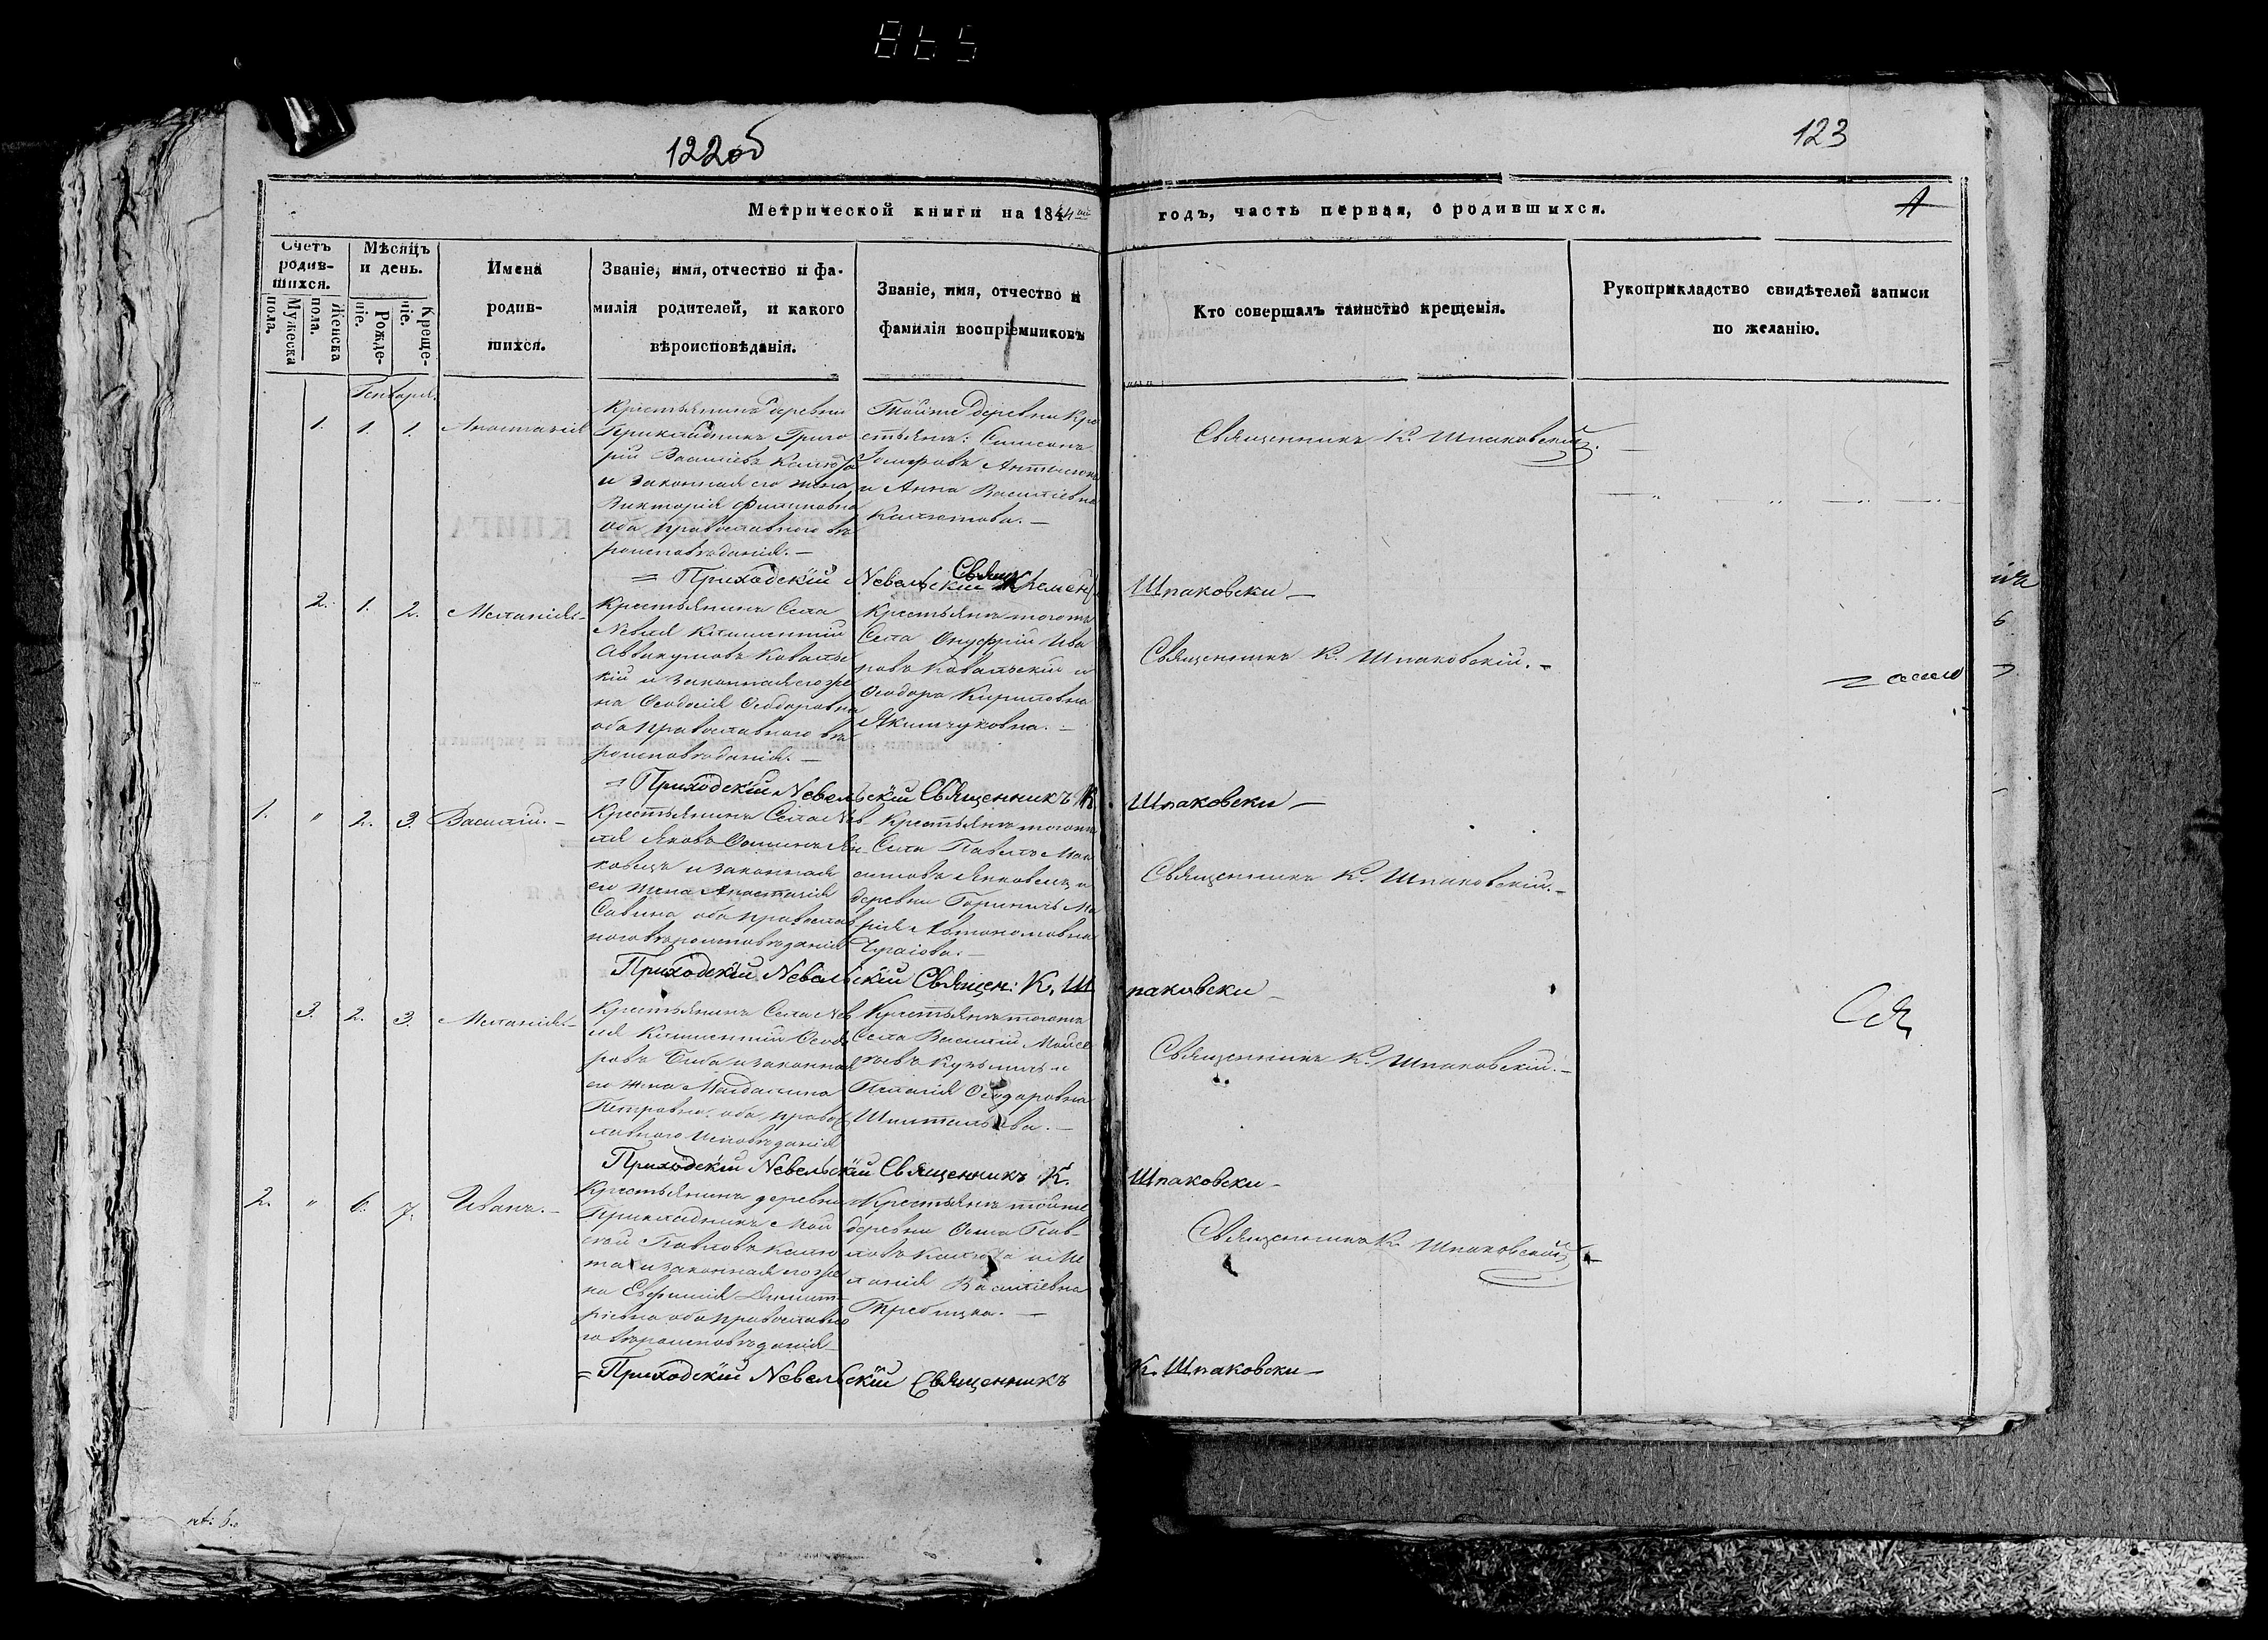 865
122об
123
Метрической книги на 1844 годъ, часть первая, о родившихся.
Счетъ родив-шихся.
Мужеска пола.
Женска пола.
Мѣсяцъ и день.
Рожде-ніе.
Креще-ніе.
Имена
родив-
шихся.
Званіе, имя, отчество и фа-
милія родителей, и какого
вѣроисповѣданія.
Званіе, имя, отчество и
фамилія воспріемниковъ
Кто совершалъ таинство крещенія.
Рукоприкладство свидѣтелей записи
по желанію.
Генваря.
1. 1. 1. Анастасія
Крестьянинъ деревни
Прикладникъ Григо-
рій Василіевъ Калюта
и законная его жена
Викторія Филиповна
оба православнаго вѣ
роисповѣданія. —
Тойже деревни Кре
стьяне: Симеонъ
и Анна Василіевна
Калютова. —
Священникъ К. Шпаковскій.
= Приходскій Невельскій Свящ Клемен Шпаковски —
2. 1. 2. Меланія —
Крестьянинъ Села
Невля Климентій
Аввакумовъ Ковальс
кій и законная его же
на Ѳеодосія Ѳеодоровна
оба православнаго вѣ
роисповѣданія. —
Крестьяне тогожъ
Села Онуфрій Ива
новъ Ковальскій и
Ѳеодора Кирилловна
Якимчуковна. —
Священникъ К. Шпаковскій. —
= Приходскій Невельскій Священникъ К Шпаковски —
1. " 2. 3. Василій. —
Крестьянинъ Села Нев
ля Яковъ Ѳоминъ Ян
ковецъ и законная
его жена Анастасія
Савина оба православ
наго вѣроисповѣданія
Крестьяне тогожъ
Села Павелъ Мак
симовъ Янковецъ и
деревни Гориничъ Ма
рія Автономовна
Священникъ К. Шпаковскій. —
Приходскій Невельскій Священ: К. Шпаковски —
3. 2. 3. Меланія —
Крестьянинъ Села Нев
ля Климентій Ѳеодо
ровъ и законная
его жена Магдалина
Петровна оба правос
лавнаго исповѣданія
Крестьяне тогожъ
Села Василій Моисе
евъ Кузьмичъ и
Пелагія Ѳеодоровна
Священникъ К. Шпаковскій. —
Приходскій Невельскій Священникъ К. Шпаковски —
2. " 6. 7. Иванъ. —
Крестьянинъ деревни
Прикладникъ Мои
сей Павловъ Калю
та и законная его же
на Евфимія Димит
ріевна оба православна
го вѣроисповѣданія
Крестьяне тойже
деревни Ѳома Пав-
ловъ Калюта и Ме
ланія Василіевна
Священникъ К. Шпаковскій
= Приходскій Невельскій Священникъ К. Шпаковски —